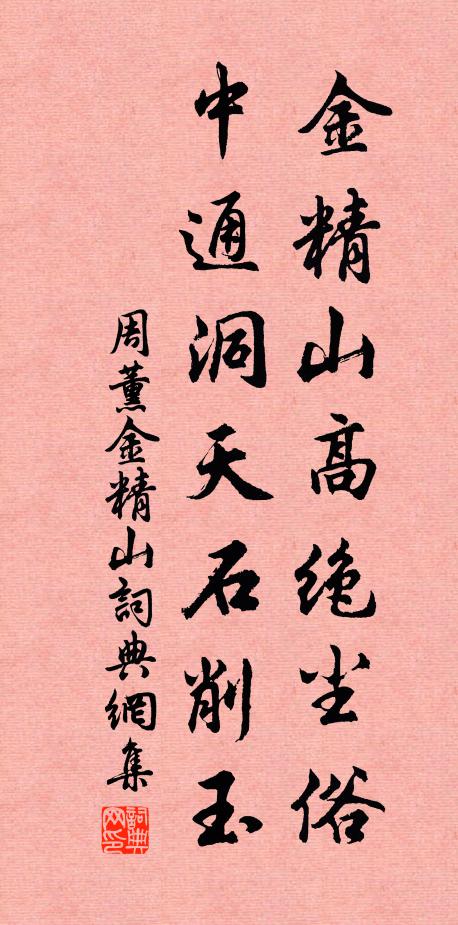 金精山高绝尘俗
中通洞天石削玉
周薰金精山詞典網集
詞典网印